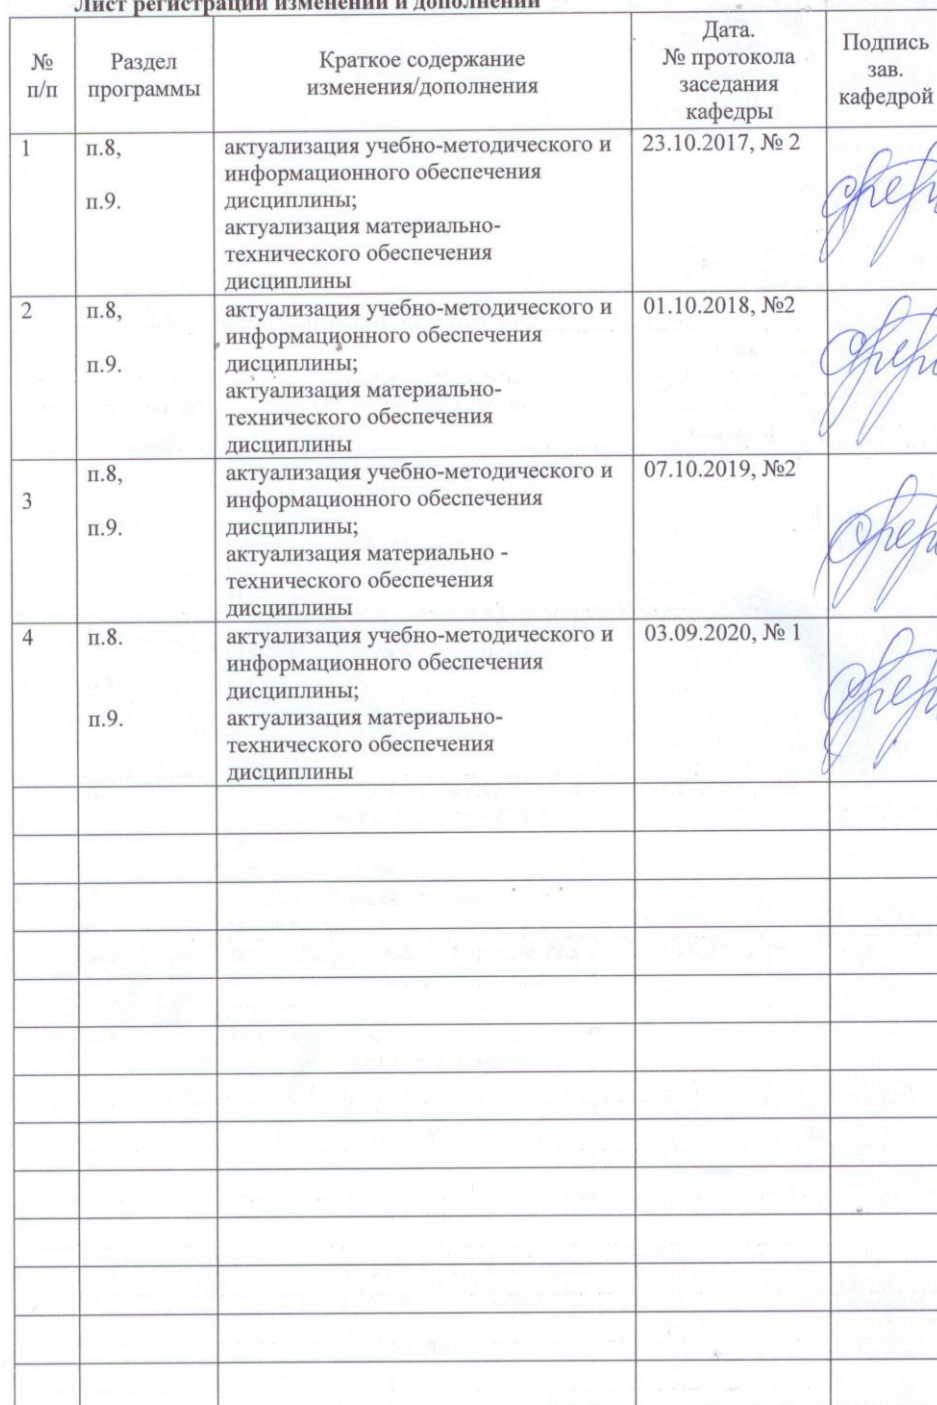 Лист регистрации изменений и дополнений
№ п/п
Раздел программы
Краткое содержание изменения/дополнения
Дата. № протокола заседания кафедры
Подпись зав. кафедрой
1
п.8,
п.9.
актуализация учебно-методического и
информационного обеспечения
дисциплины;
актуализация материально-
технического обеспечения
дисциплины
23.10.2017, № 2
2
п.8,
п.9.
актуализация учебно-методического и
информационного обеспечения
дисциплины;
актуализация материально-
технического обеспечения
дисциплины
01.10.2018, №2
3
п.8,
п.9.
актуализация учебно-методического и
информационного обеспечения
дисциплины;
актуализация материально -
технического обеспечения
дисциплины
07.10.2019, №2
4
п.8.
п.9.
актуализация учебно-методического и
информационного обеспечения
дисциплины;
актуализация материально-
технического обеспечения
дисциплины
03.09.2020, № 1